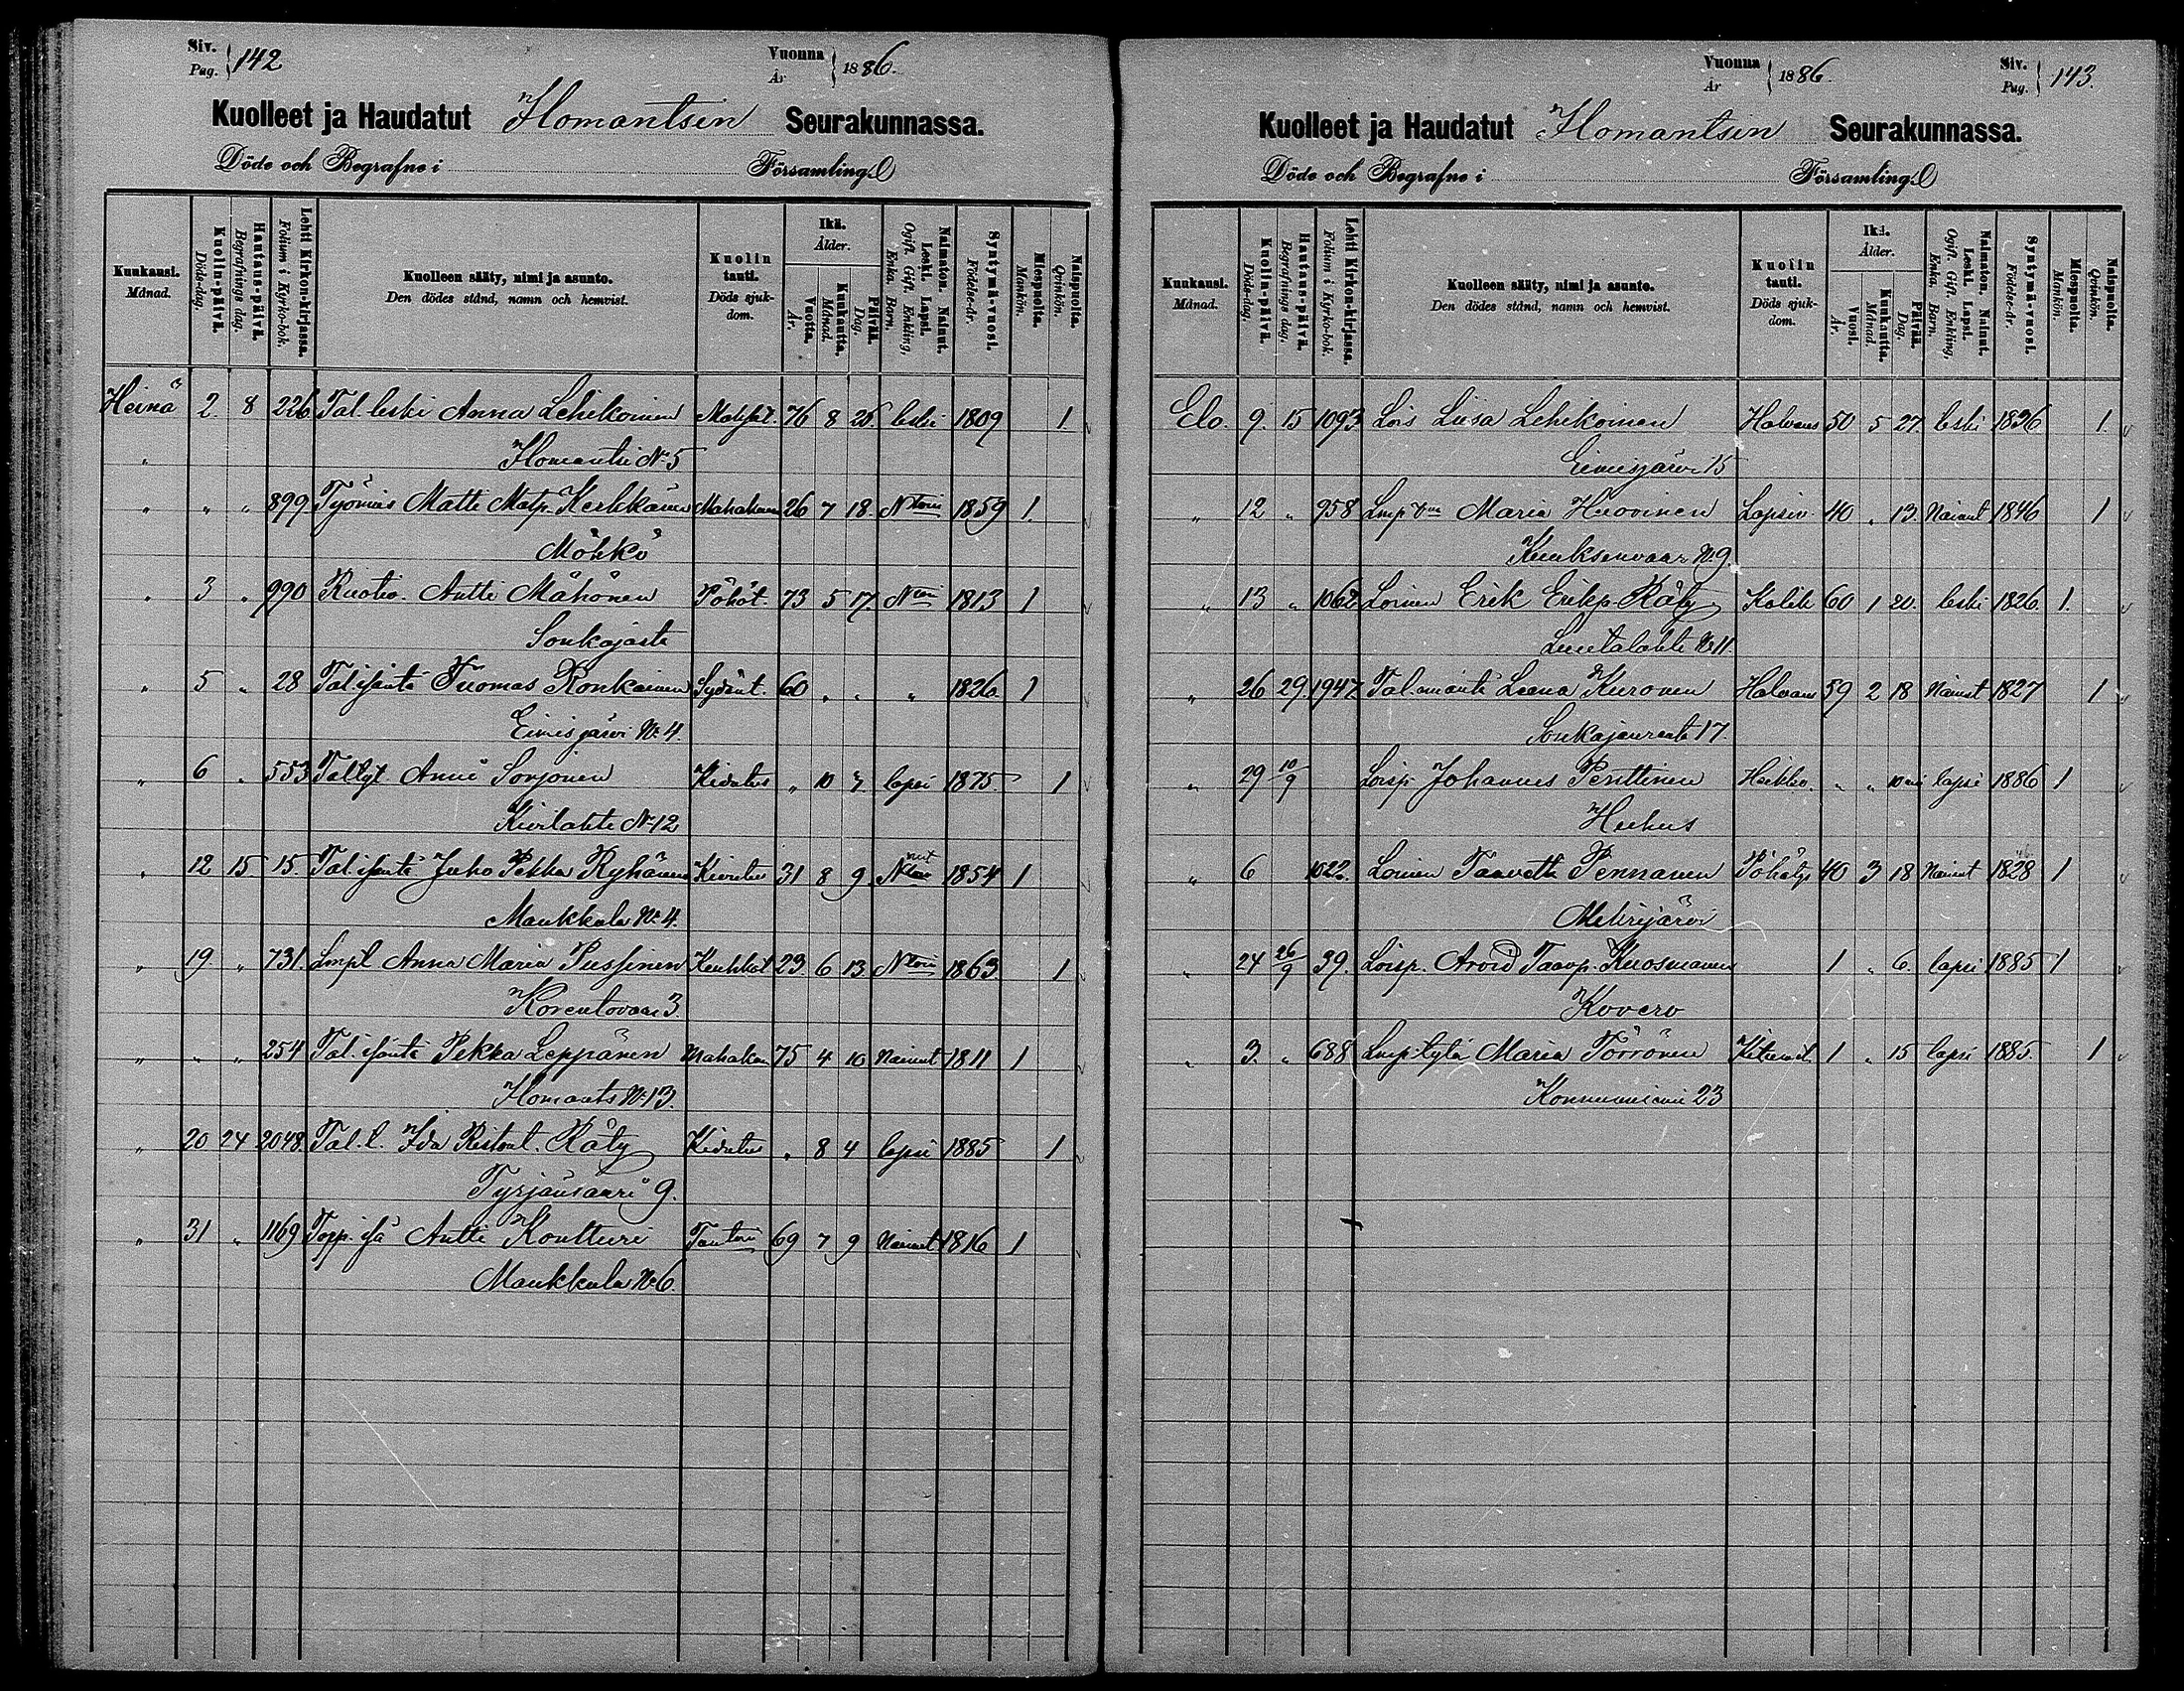 Siv. Pag. 142
Vuonna År 1886.
Kuolleet ja Haudatut Ilomantsin Seurakunnassa.
Döde och Begrafne i Församling.
Kuukausi. Månad.
Kuolin-päivä. Döds-dag.
Hautaus-päivä. Begrafnings dag.
Lehti Kirkon-kirjassa. Folium i Kyrko-bok.
Kuolleen sääty, nimi ja asunto. Den dödes stånd, namn och hemvist.
Kuolin tauti. Döds sjukdom.
Ikä. Ålder.
Vuotta. År.
Kuukautta. Månad.
Päivää. Dag.
Naimaton. Nainut. Leski. Lapsi. Ogift. Gift. Enkling. Enka. Barn.
Syntymä-vuosi. Födelse-år.
Miespuolta. Mankön.
Naispuolta. Qvinkön.
Heinä 2. 8 226 Tal. leski Anna Lehikoinen 76 8 26. leski 1809 1.
" Ilomantsi No 5
" " " 899 Työmies Matti Matp. Kerkkänen 26 7 18. Ntoin 1859 1.
Möhkö
" 3 " 990 Ruotiv. Antti Mähönen Pöhöt. 73 5 17. 1813 1
Sonkaja
" 5 " 28 Tal. isäntä Tuomas Konkainen Sydänt. 60 " " " 1826 1
Eimisjärvi No 4.
" 6 " 553 Tal tyt Anni Sorjonen Kidutus " 10 7. lapsi 1875. 1
Kivilahti No 12
" 12 15 15. Tal. isäntä Juho Pekka Ryhänen 31 8 9 1854 1
Maukkula No 4.
" 19 " 731. Lmpl Anna Maria Pussinen Keuhkot 23 6 13 Ntoin 1863 1
Korentovaar 3.
" " " 254 Tal. isäntä Pekka Leppänen 75 4 10 Nainut 1811 1
Ilomants No 13.
" 20 24 2048 Tal. l. Ida Ristont. Räty Kidutus " 8 4 lapsi 1885 1
Tyrjänsaari 9.
" 31 " 1169 Topp. isä Antti Kontturi 69 7 9 Nainut 1816 1
Maukkula No 6.
Vuonna År 1886.
Siv. Pag. 143.
Kuolleet ja Haudatut Ilomantsin Seurakunnassa.
Döde och Begrafne i Församling.
Kuukausi. Månad.
Kuolin-päivä. Döds-dag.
Hautaus-päivä. Begrafnings dag.
Lehti Kirkon-kirjassa. Folium i Kyrko-bok.
Kuolleen sääty, nimi ja asunto. Den dödes stånd, namn och hemvist.
Kuolin tauti. Döds sjukdom.
Ikä. Ålder.
Vuosi. År.
Kuukautta. Månad.
Päivää. Dag.
Naimaton. Nainut. Leski. Lapsi. Ogift. Gift. Enkling. Enka. Barn.
Syntymä-vuosi. Födelse-år.
Miespuolta. Mankön.
Naispuolta. Qvinkön.
Elo. 9. 15 1093 Lois Liisa Lehikoinen Halvaus 50 5 27. leski 1836 1.
Eimisjärvi 15
" 12 " 958 Maria Huovinen Lapsiv. 40 " 13. Nainut 1846 1
Kuuksenvaar No 9.
" 13 " 1062 Loinen Erik Erikp. Räty 60 1 20. leski 1826. 1.
Luutalahti No 11
" 26 29. 1947 Tal. emäntä Leena Kuronen Halvaus 59 2 18 Nainut 1827 1
17.
" 29 10/9 Loisp. Johannes Penttinen Heikko. " " lapsi 1886 1
Huhus
" 6 1022. Loinen Taavetti Pennanen 40 3 18 Nainut 1828 1
Mekrijärvi
" 24 26/9 39. Loisp. Arvid Taavp. Kuosmanen 1 " 6. lapsi 1885 1
Kovero
" 3. " 688 Maria Törrönen 1 " 15 lapsi 1885. 1
Konnunniemi 23